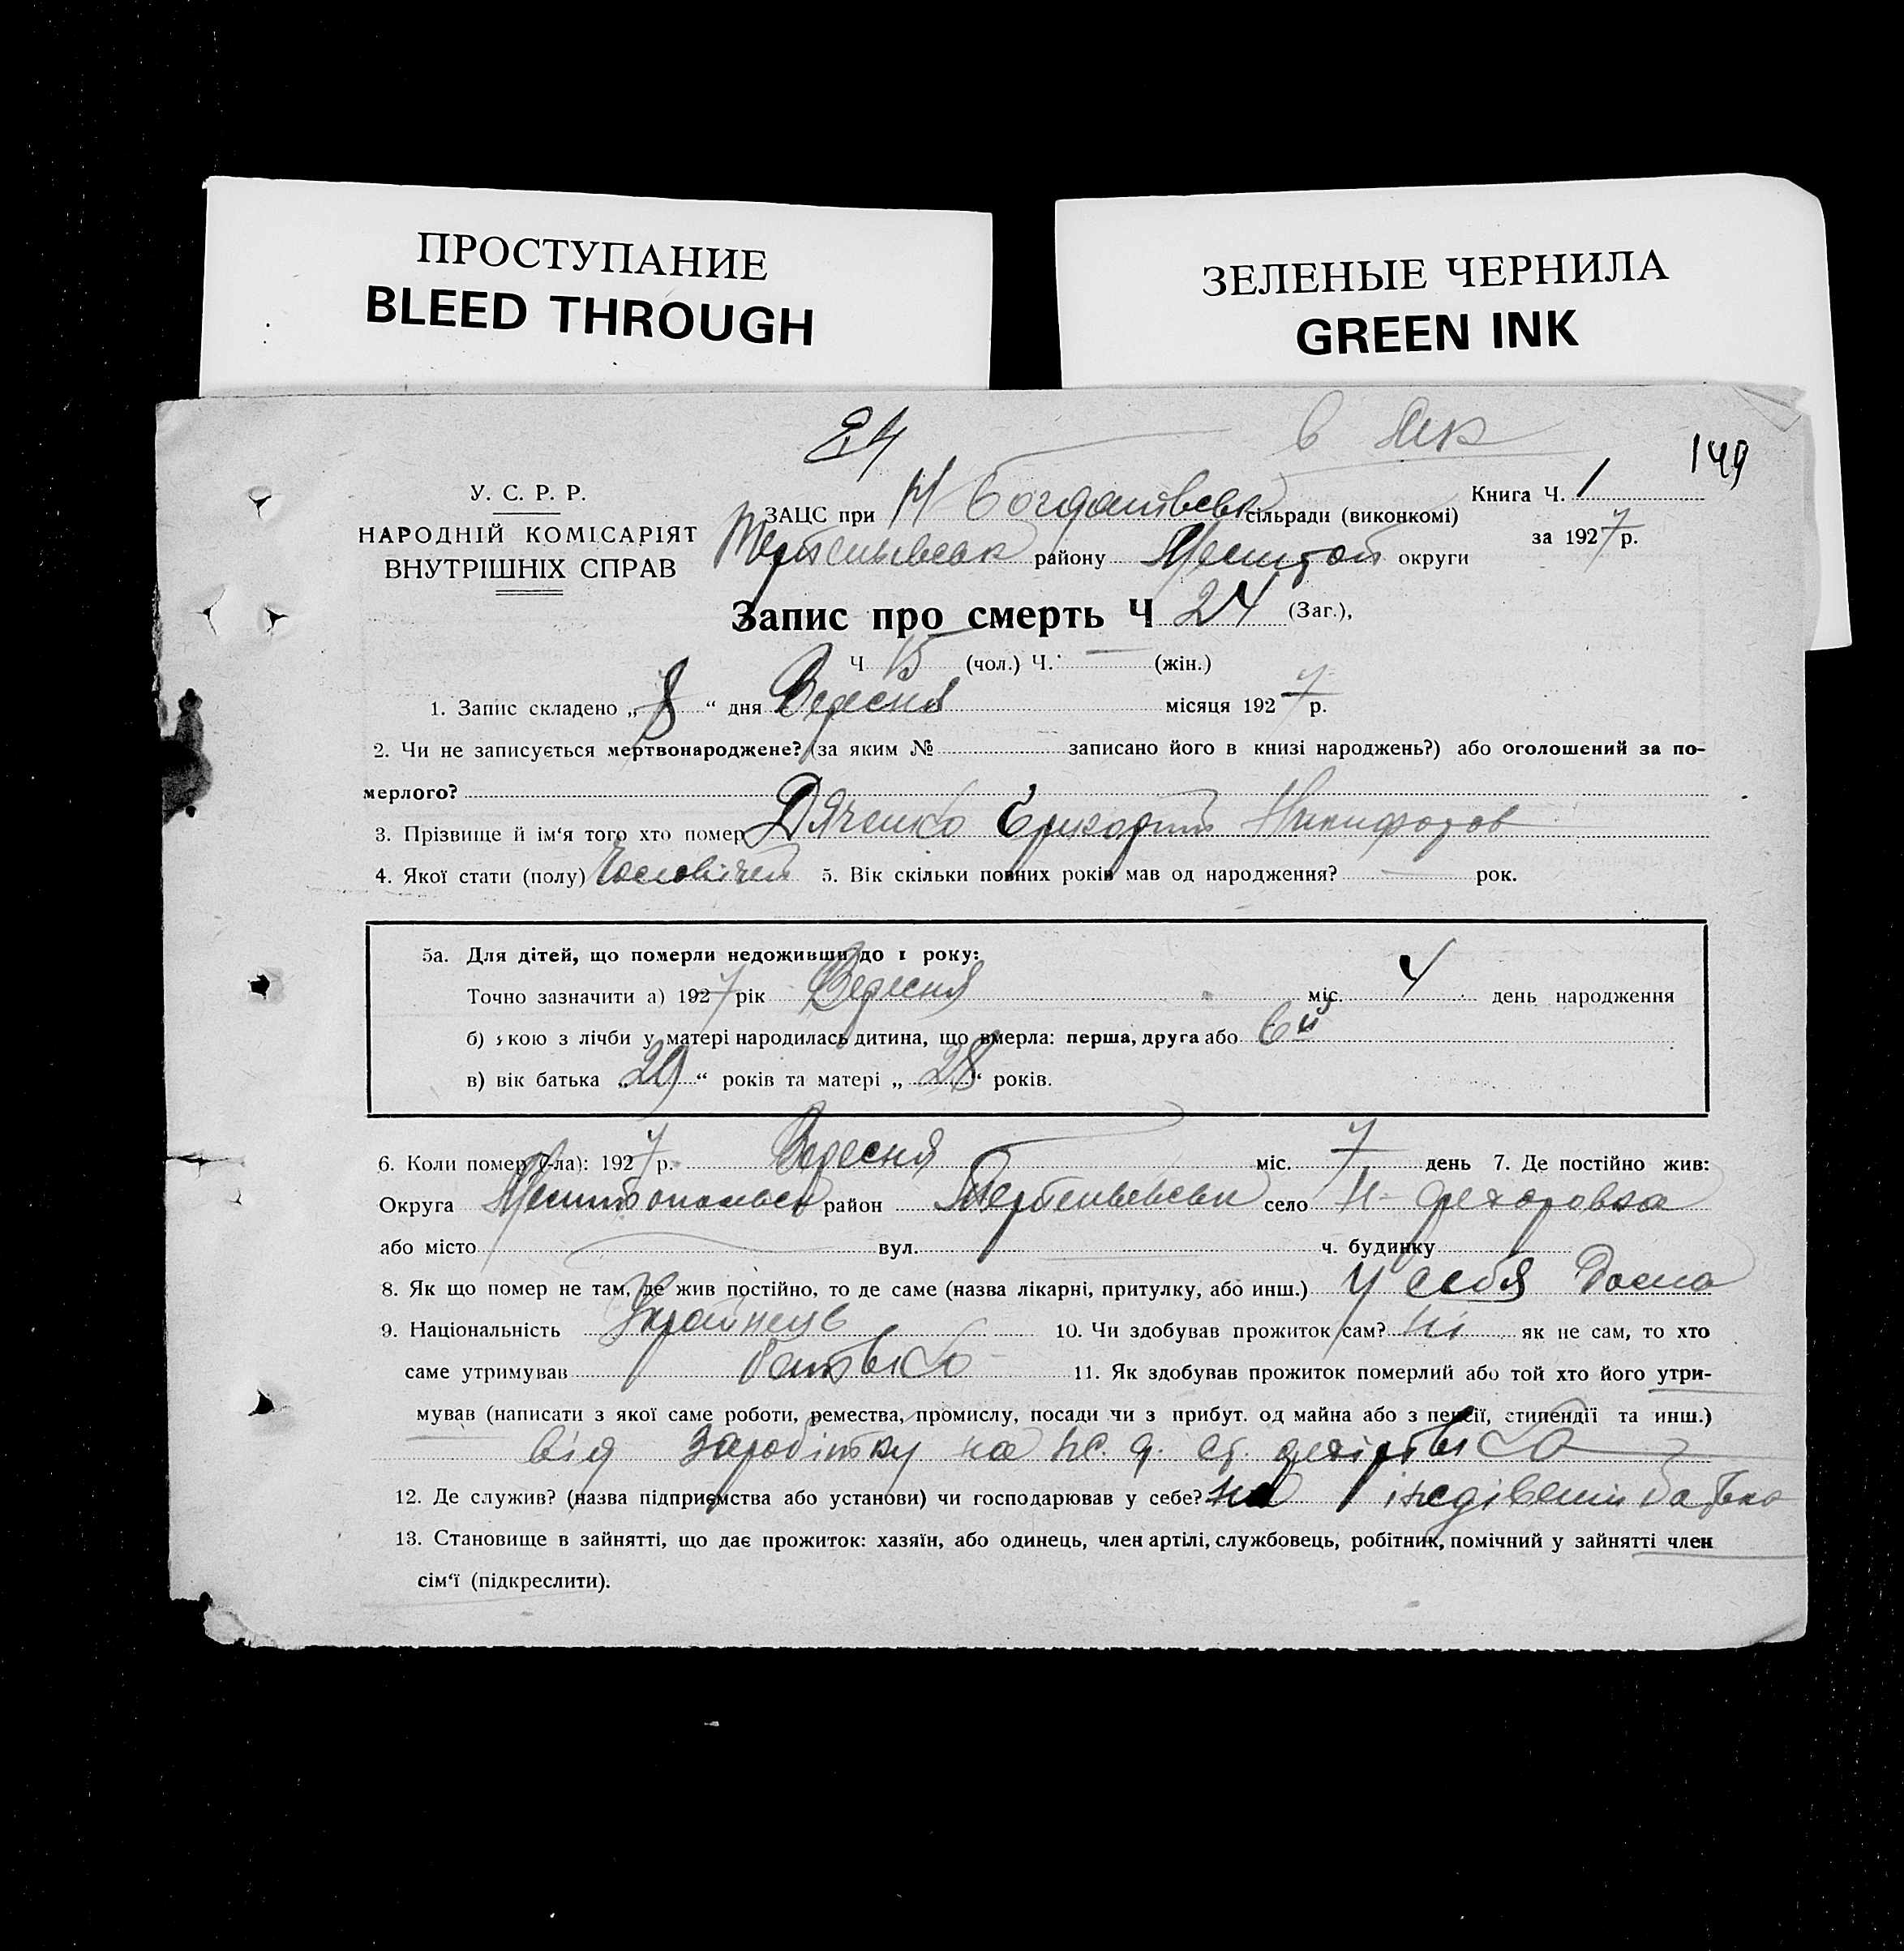 ПРОСТУПАНИЕ
BLEED THROUGH
ЗЕЛЕНЫЕ ЧЕРНИЛА
GREEN INK
24
149
У. С. Р. Р.
НАРОДНІЙ КОМІСАРІЯТ
ВНУТРІШНІХ СПРАВ
Книга Ч. 1
за 1927 р.
ЗАЦС при Н Богданівськ сільради (виконкомі)
району округи
Запис про смерть Ч 24 (Заг.),
Ч 15 (чол.) Ч. — (жін.)
1. Запис складено „ 8 “ дня Вересня місяця 1927 р.
2. Чи не записується мертвонароджене? (за яким № записано його в книзі народжень?) або оголошений за по-
мерлого?
3. Прізвище й ім'я того хто помер Дяченко Григорий Никифоров
4. Якої стати (полу) 5. Вік скільки повних років мав од народження? — рок.
5а. Для дітей, що померли недоживши до 1 року:
Точно зазначити а) 1927 рік Вересня міс. 4 день народження
б) якою з лічби у матері народилась дитина, що вмерла: перша, друга або 6й
в) вік батька „ 29 “ років та матері „ 28 “ років.
6. Коли помер (-ла): 1927 р. Вересня міс. 7 день 7. Де постійно жив:
Округа район село Н-Федоровка
або місто вул. ч. будинку
8. Як що помер не там, де жив постійно, то де саме (назва лікарні, притулку, або инш.) у себя дома
9. Національність Українець 10. Чи здобував прожиток сам? Ні як не сам, то хто
саме утримував батько 11. Як здобував прожиток померлий або той хто його утри-
мував (написати з якої саме роботи, ремества, промислу, посади чи з прибут. од майна або з пенсії, стипендії та инш.)
від заробітку на
12. Де служив? (назва підприємства або установи) чи господарював у себе? на батька
13. Становище в зайнятті, що дає прожиток: хазяїн, або одинець, член артілі, службовець, робітник, помічний у зайнятті член
сім'ї (підкреслити).